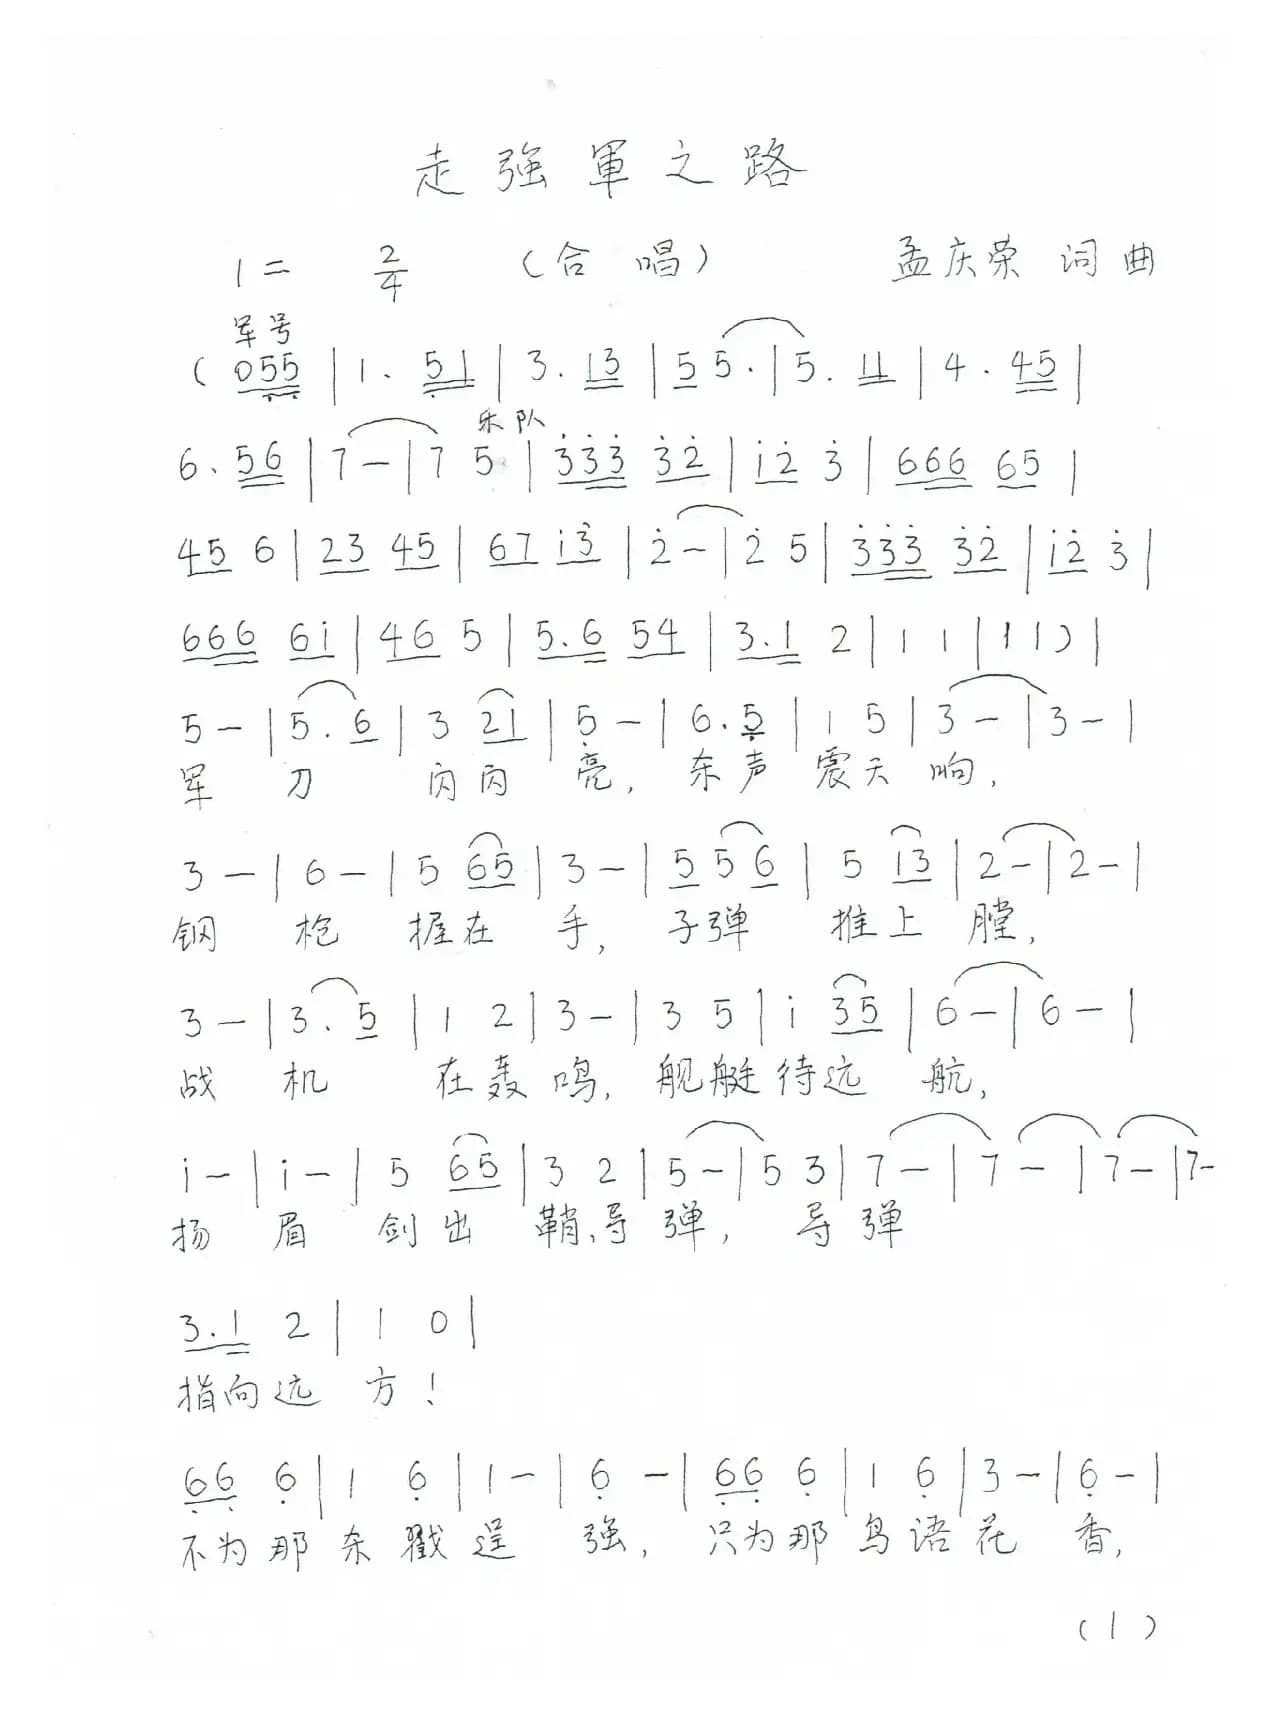 走強軍之路
1= 2/4 (合唱) 孟庆荣 词曲
军号
( 055 | 1. 51 | 3. 13 | 5 5. | 5. 11 | 4. 45 |
乐队
6. 56 | 7 — | 7 5 | 333 32 | i2 3 | 666 65 |
45 6 | 23 45 | 67 i3 | 2 — | 2 5 | 333 32 | i2 3 |
666 6i | 46 5 | 5.6 54 | 3.1 2 | 1 1 | 1 1 ) |
5 — | 5. 6 | 3 21 | 5 — | 6. 5 | 1 5 | 3 — | 3 — |
军 刀 闪闪 亮, 声 震天 响,
3 — | 6 — | 5 65 | 3 — | 5 5 6 | 5 13 | 2 — | 2 — |
钢 枪 握在 手, 子弹 推上 膛,
3 — | 3. 5 | 1 2 | 3 — | 3 5 | i 35 | 6 — | 6 — |
战 机 在轰 鸣, 舰艇待远 航,
i — | i — | 5 65 | 3 2 | 5 — | 5 3 | 7 — | 7 — | 7 — | 7 —
扬 眉 剑出 鞘、导弹, 导弹
3.1 2 | 1 0 |
指向远 方!
66 6 | 1 6 | 1 — | 6 — | 66 6 | 1 6 | 3 — | 6 — |
不为那 杀戮逞 强, 只为那 鸟语花 香,
(1)